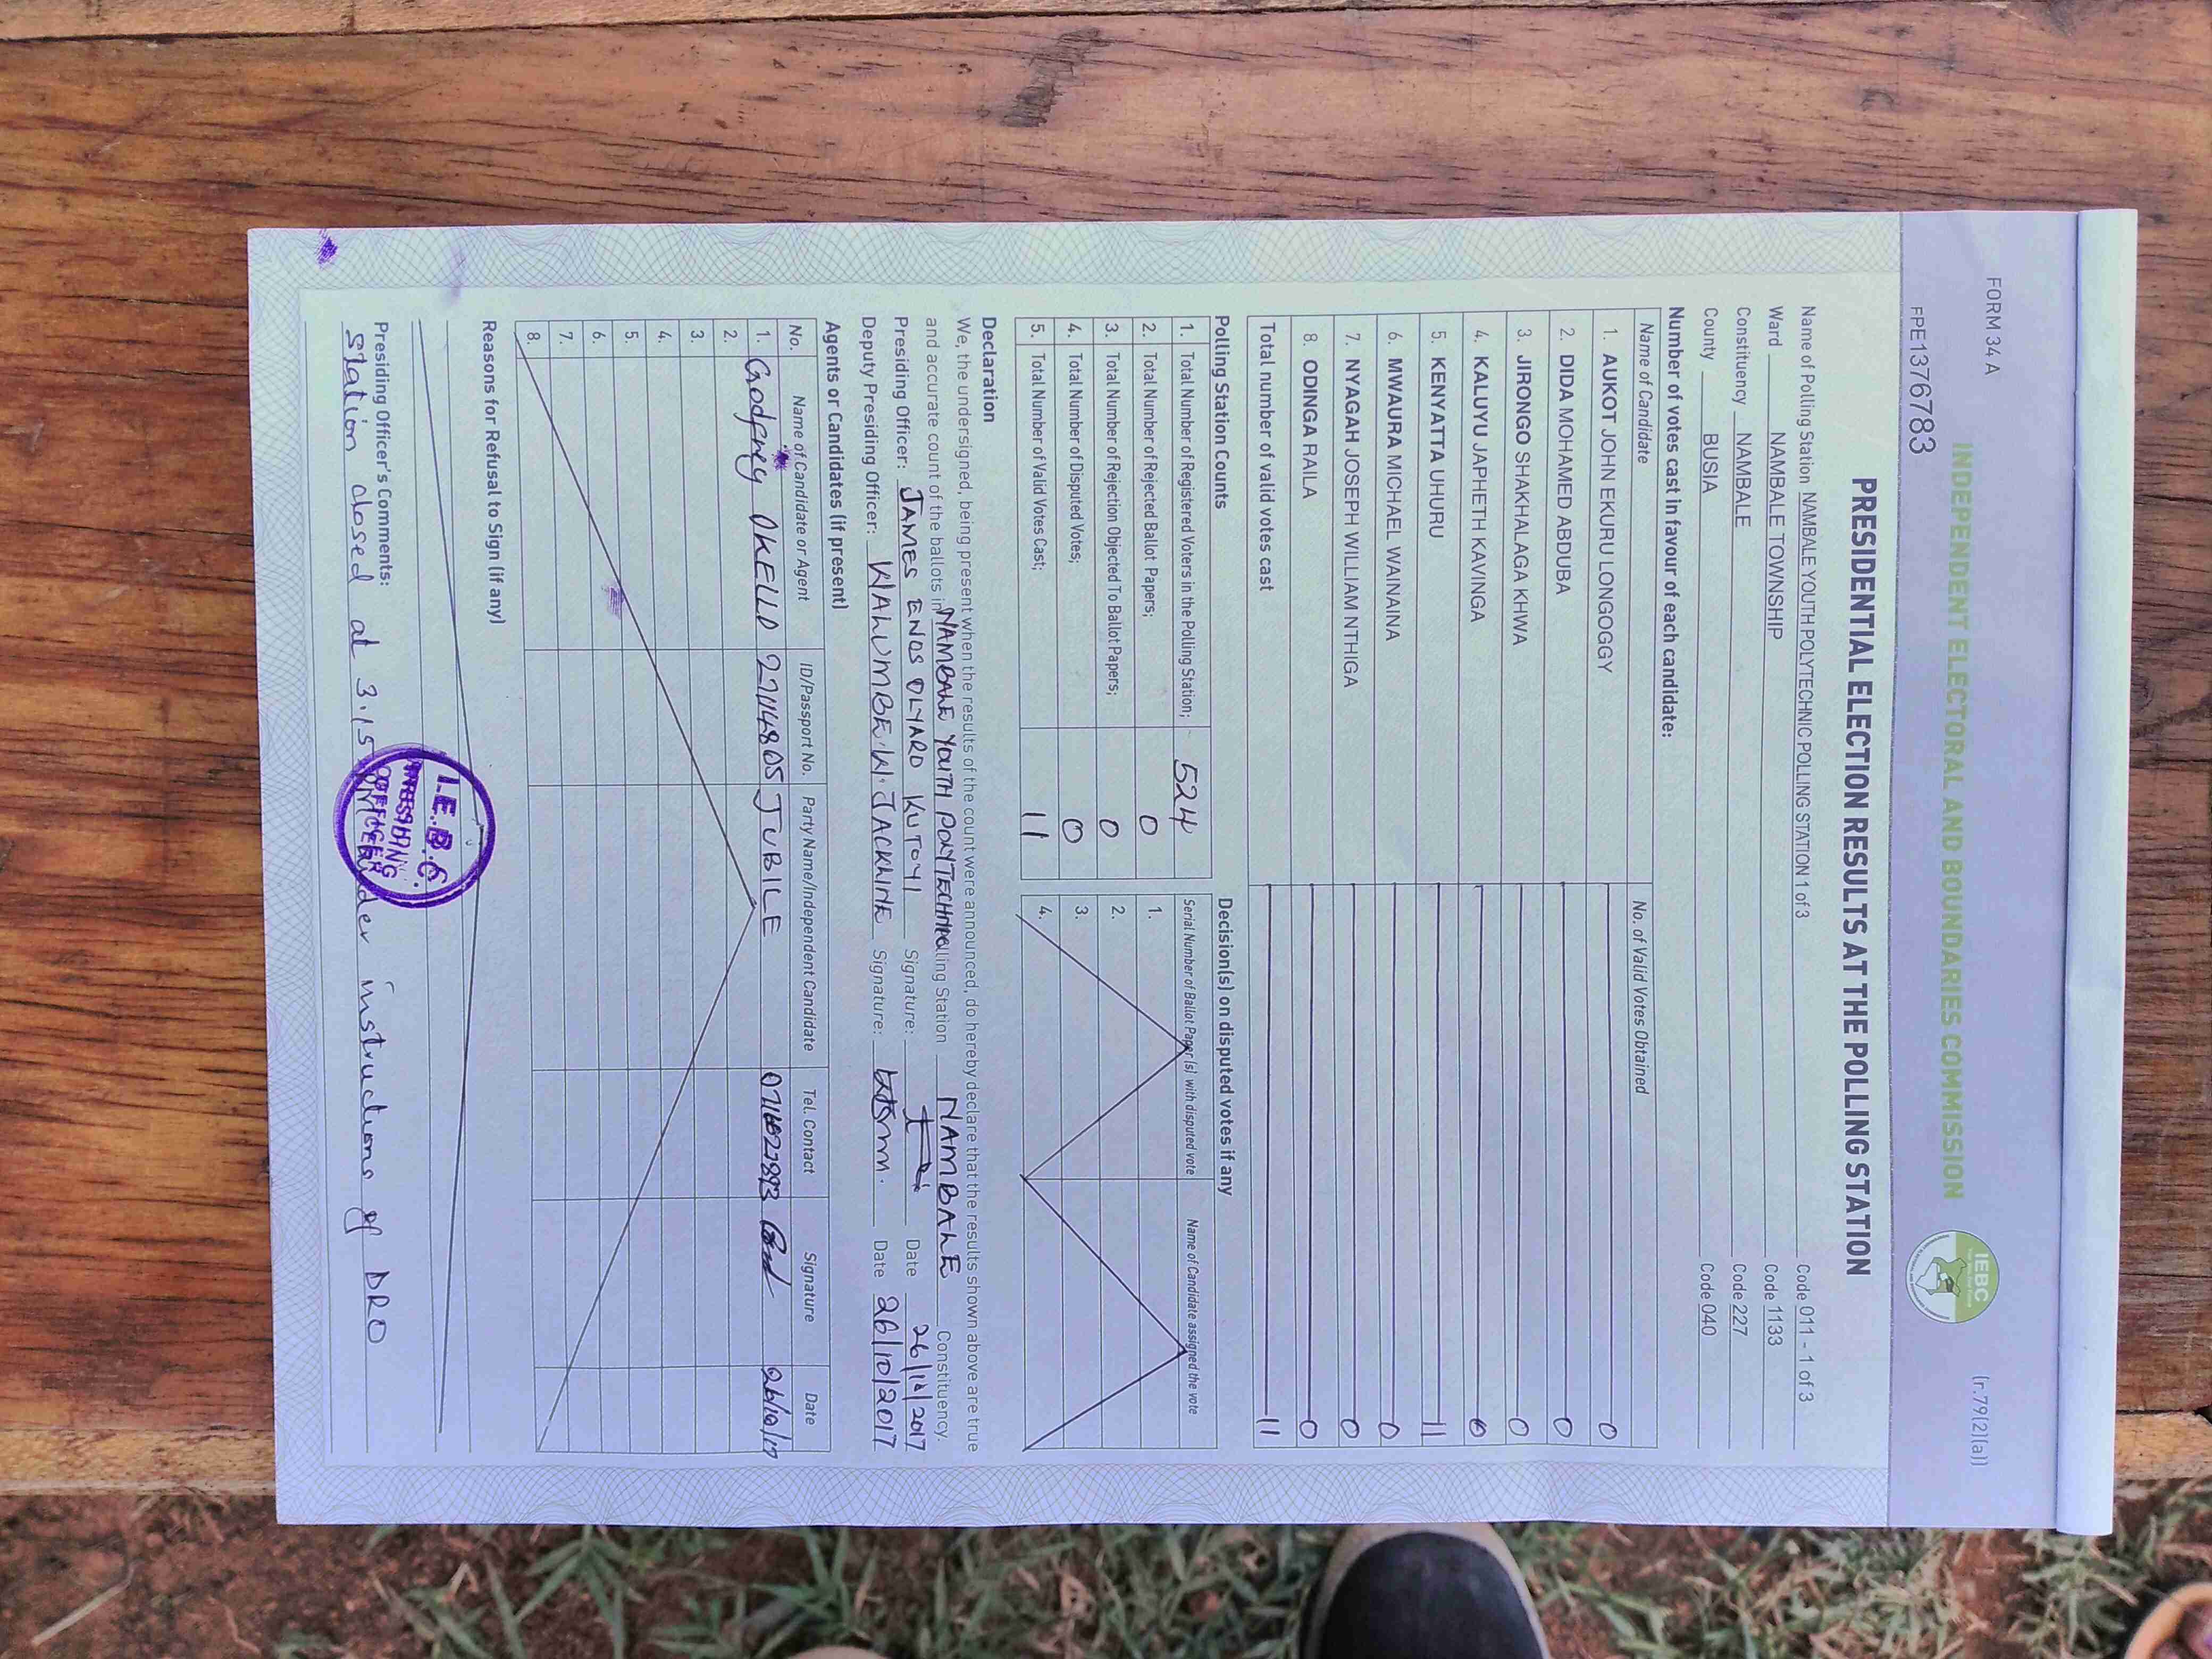 FORM 34 A
(r.79(2)(a))
INDEPENDENT ELECTORAL AND BOUNDARIES COMMISSION
IEBC
FPE1376783
PRESIDENTIAL ELECTION RESULTS AT THE POLLING STATION
Name of Polling Station NAMBALE YOUTH POLYTECHNIC POLLING STATION 1 of 3 Code 011 - 1 of 3
Ward NAMBALE TOWNSHIP Code 1133
Constituency NAMBALE Code 227
County BUSIA Code 040
Number of votes cast in favour of each candidate:
Name of Candidate No. of Valid Votes Obtained
1. AUKOT JOHN EKURU LONGOGGY 0
2. DIDA MOHAMED ABDUBA 0
3. JIRONGO SHAKHALAGA KHWA 0
4. KALUYU JAPHETH KAVINGA 0
5. KENYATTA UHURU 11
6. MWAURA MICHAEL WAINAINA 0
7. NYAGAH JOSEPH WILLIAM NTHIGA 0
8. ODINGA RAILA 0
Total number of valid votes cast 11
Polling Station Counts
1. Total Number of Registered Voters in the Polling Station; 524
2. Total Number of Rejected Ballot Papers; 0
3. Total Number of Rejection Objected To Ballot Papers; 0
4. Total Number of Disputed Votes; 0
5. Total Number of Valid Votes Cast; 11
Decision(s) on disputed votes if any
Serial Number of Ballot Paper (s) with disputed vote Name of Candidate assigned the vote
1.
2.
3.
4.
Declaration
We, the undersigned, being present when the results of the count were announced, do hereby declare that the results shown above are true
and accurate count of the ballots in NAMBALE YOUTH POLYTECHNIC Polling Station NAMBALE Constituency.
Presiding Officer: JAMES ENOS OLYARO KUTOYI Signature: Date 26/10/2017
Deputy Presiding Officer: WALUMBE.W.JACKLINE Signature: Date 26/10/2017
Agents or Candidates (if present)
No. Name of Candidate or Agent ID/Passport No. Party Name/Independent Candidate Tel. Contact Signature Date
1. Godfrey OKELLO 27114805 JUBILE 26/10/17
2.
3.
4.
5.
6.
7.
8.
Reasons for Refusal to Sign (if any)
Presiding Officer's Comments:
Station closed at 3.15 under instructions of DRO
I.E.B.C
PRESIDING
OFFICER